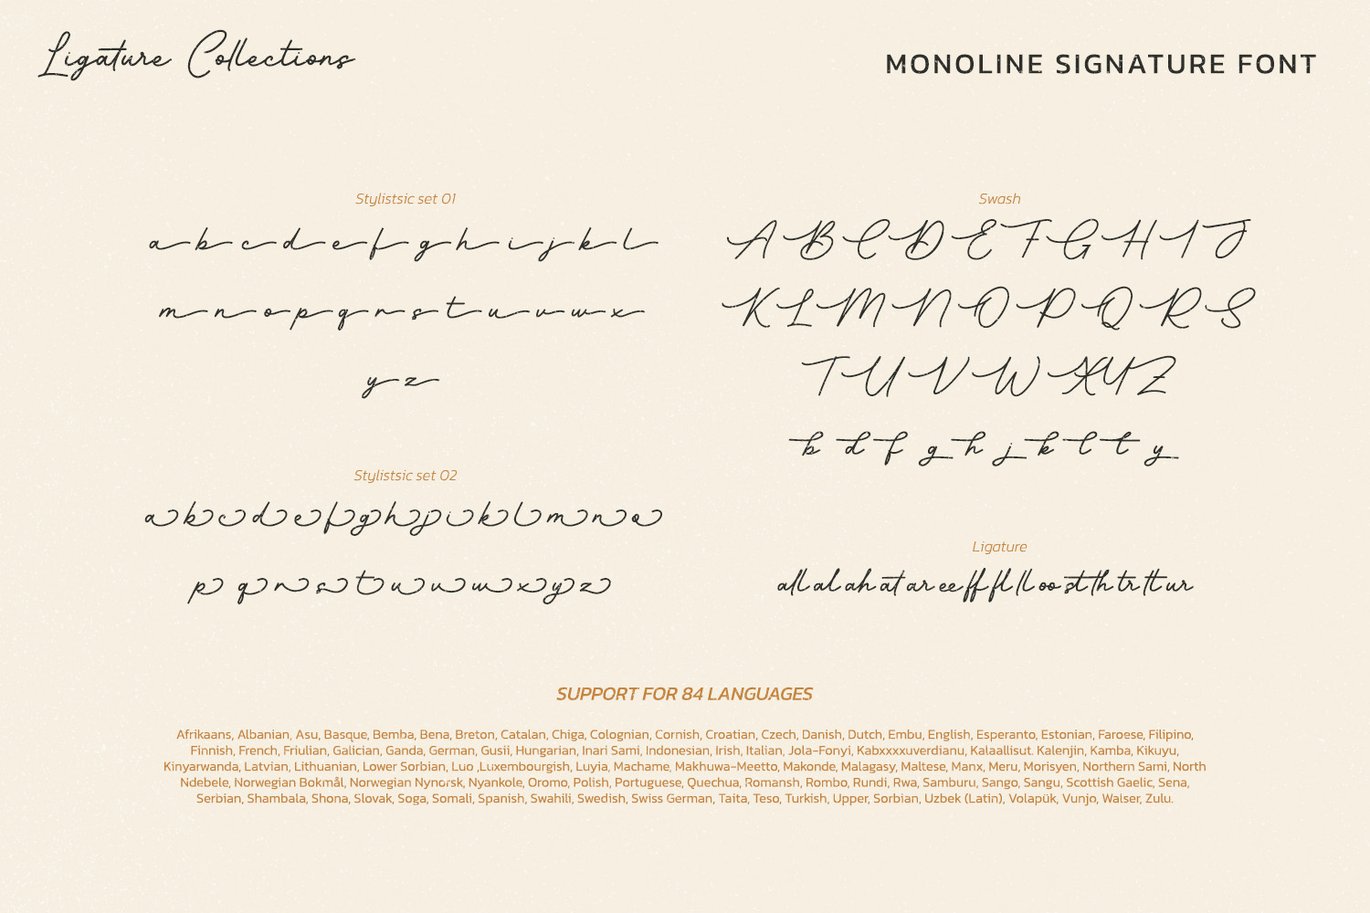 Ligature Collections
MONOLINE SIGNATURE FONT
Stylistsic set 01
a b c d e f g h i j k l
m n o p q r s t u v w x
y z
Stylistsic set 02
a b c d e f g h j i k l m n o
p q r s t u v w x y z
Swash
A B C D E F G H I J
K L M N O P Q R S
T U V W X Y Z
b d f g h j k l t y
Ligature
all al ah at ar ee ff fl ll oo st th tr tt ur
SUPPORT FOR 84 LANGUAGES
Afrikaans, Albanian, Asu, Basque, Bemba, Bena, Breton, Catalan, Chiga, Colognian, Cornish, Croatian, Czech, Danish, Dutch, Embu, English, Esperanto, Estonian, Faroese, Filipino,
Finnish, French, Friulian, Galician, Ganda, German, Gusii, Hungarian, Inari Sami, Indonesian, Irish, Italian, Jola-Fonyi, Kabxxxxuverdianu, Kalaallisut. Kalenjin, Kamba, Kikuyu,
Kinyarwanda, Latvian, Lithuanian, Lower Sorbian, Luo ,Luxembourgish, Luyia, Machame, Makhuwa-Meetto, Makonde, Malagasy, Maltese, Manx, Meru, Morisyen, Northern Sami, North
Ndebele, Norwegian Bokmål, Norwegian Nynorsk, Nyankole, Oromo, Polish, Portuguese, Quechua, Romansh, Rombo, Rundi, Rwa, Samburu, Sango, Sangu, Scottish Gaelic, Sena,
Serbian, Shambala, Shona, Slovak, Soga, Somali, Spanish, Swahili, Swedish, Swiss German, Taita, Teso, Turkish, Upper, Sorbian, Uzbek (Latin), Volapük, Vunjo, Walser, Zulu.